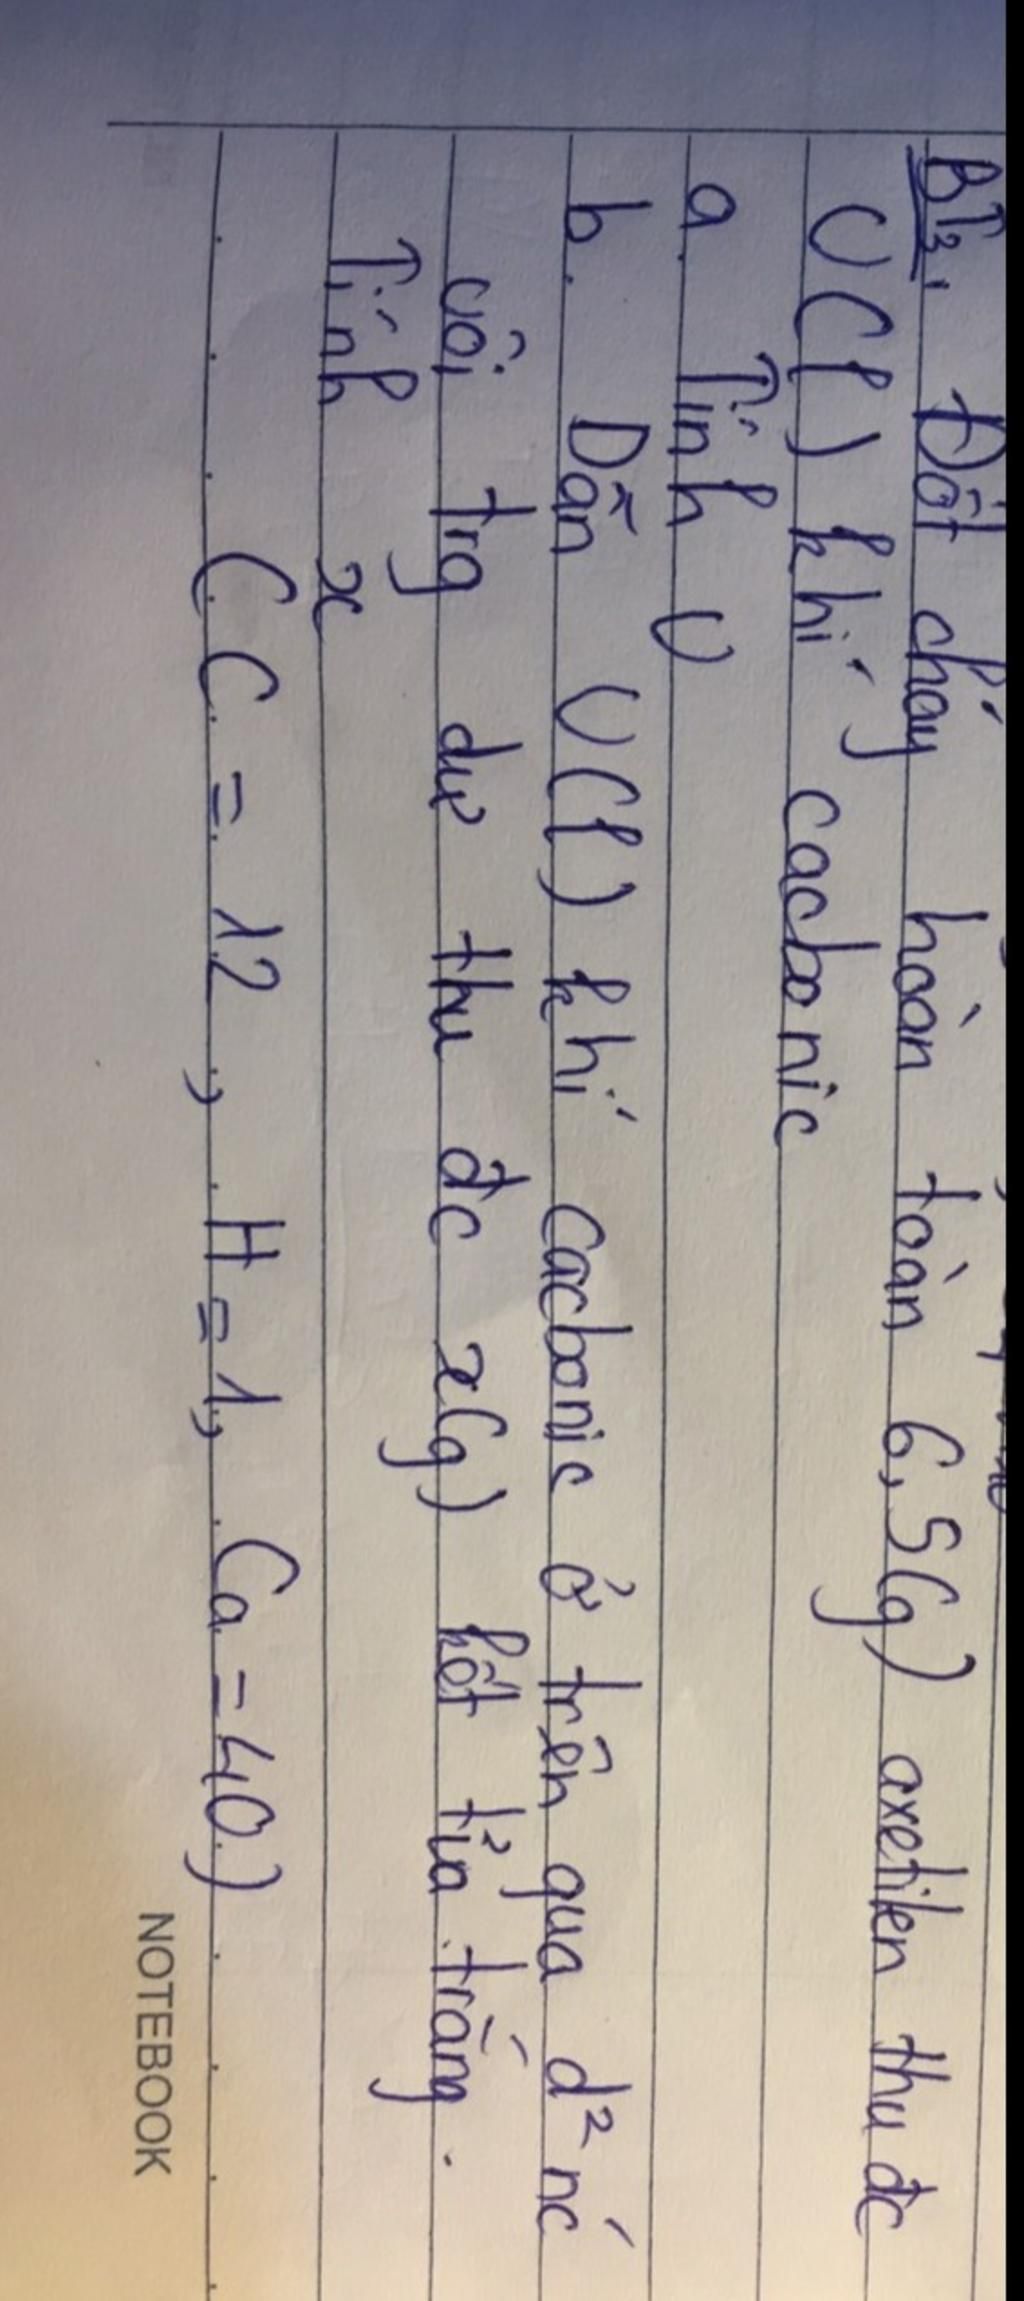 BT3. Đốt cháy hoàn toàn 6,5(g) axetilen thu đc
V(l) khí cacbonic
a. Tính V
b. Dẫn V(l) khí cacbonic ở trên qua d² nc´
vôi trg dư thu đc x(g) kết tủa trắng.
Tính x
(C = 12, H = 1, Ca = 40)
NOTEBOOK